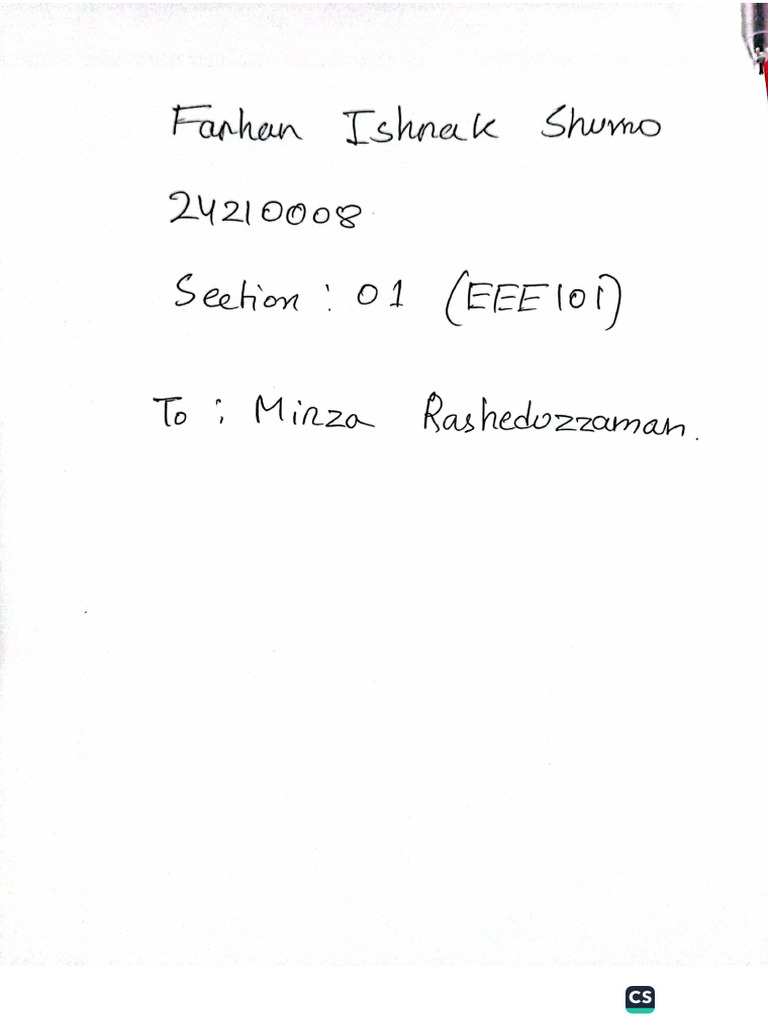 Farhan Ishrak Shumo
24210008
Section : 01 (EEE101)
To : Mirza Rasheduzzaman.
CS